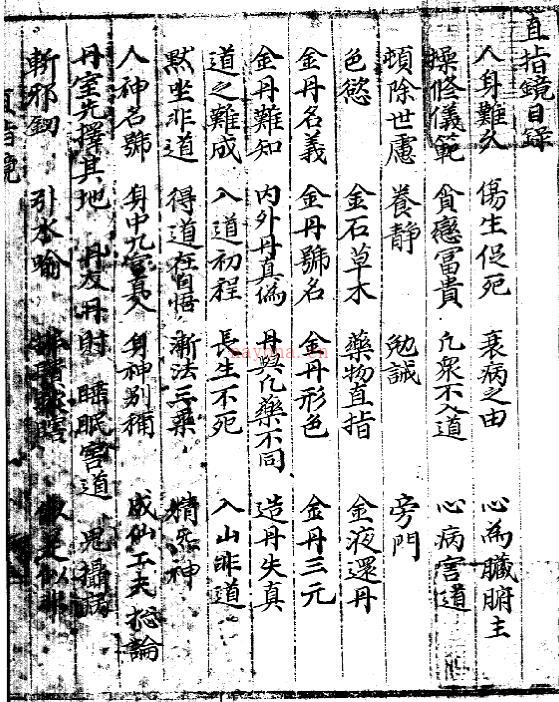 直指鏡目錄
人身難久 傷生促死 衰病之由 心為臟腑主
操修儀範 貪戀冨貴 凢衆不入道 心病害道
頓除世慮 養靜 勉誡 旁門
色慾 金石草木 藥物直指 金液還丹
金丹名義 金丹號名 金丹形色 金丹三元
金丹難知 内外丹真偽 丹與凢藥不同 造丹失真
道之難成 入道初程 長生不死 入山非道
黙坐非道 得道在自悟 漸法三藥 精炁神
人神名號 身中九宮真人 身神別稱 成仙工夫捴論
丹室先擇其地 丹友丹財 睡眠害道 鬼攝病
斬邪劒 引水喻 是似非
直指鏡